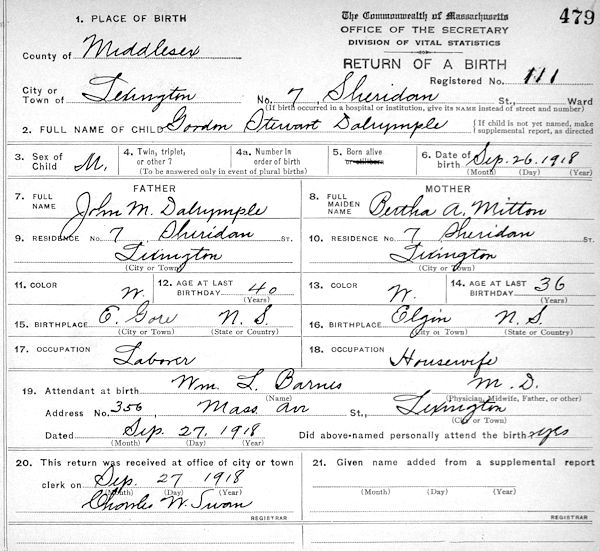 1. PLACE OF BIRTH
The Commonwealth of Massachusetts
479
OFFICE OF THE SECRETARY
DIVISION OF VITAL STATISTICS
County of Middlesex
RETURN OF A BIRTH
Registered No. 111
City or Town of Lexington No. 7, Sheridan St., Ward
(If birth occurred in a hospital or institution, give its NAME instead of street and number)
2. FULL NAME OF CHILD Gordon Stewart Dalrymple {If child is not yet named, make supplemental report, as directed
3. Sex of Child M. 4. Twin, triplet, or other? 4a. Number in order of birth 5. Born alive or stillborn 6. Date of birth Sep. 26, 1918
(To be answered only in event of plural births) (Month) (Day) (Year)
FATHER MOTHER
7. FULL NAME John M. Dalrymple 8. FULL MAIDEN NAME Bertha A. Mitton
9. RESIDENCE No. 7 Sheridan ST. 10. RESIDENCE No. 7 Sheridan ST.
Lexington Lexington
(City or Town) (City or Town)
11. COLOR W. 12. AGE AT LAST BIRTHDAY 40 (Years) 13. COLOR W. 14. AGE AT LAST BIRTHDAY 36 (Years)
15. BIRTHPLACE E. Gore N. S. 16. BIRTHPLACE Elgin N. S.
(City or Town) (State or Country) (City or Town) (State or Country)
17. OCCUPATION Laborer 18. OCCUPATION Housewife
19. Attendant at birth Wm. L. Barnes M. D.
(Name) (Physician, Midwife, Father, or other)
Address No. 356, Mass. Av St., Lexington
(City or Town)
Dated Sep. 27, 1918 Did above-named personally attend the birth? yes
(Month) (Day) (Year)
20. This return was received at office of city or town 21. Given name added from a supplemental report
clerk on Sep. 27 1918
(Month) (Day) (Year) (Month) (Day) (Year)
Charles W. Swan
REGISTRAR REGISTRAR